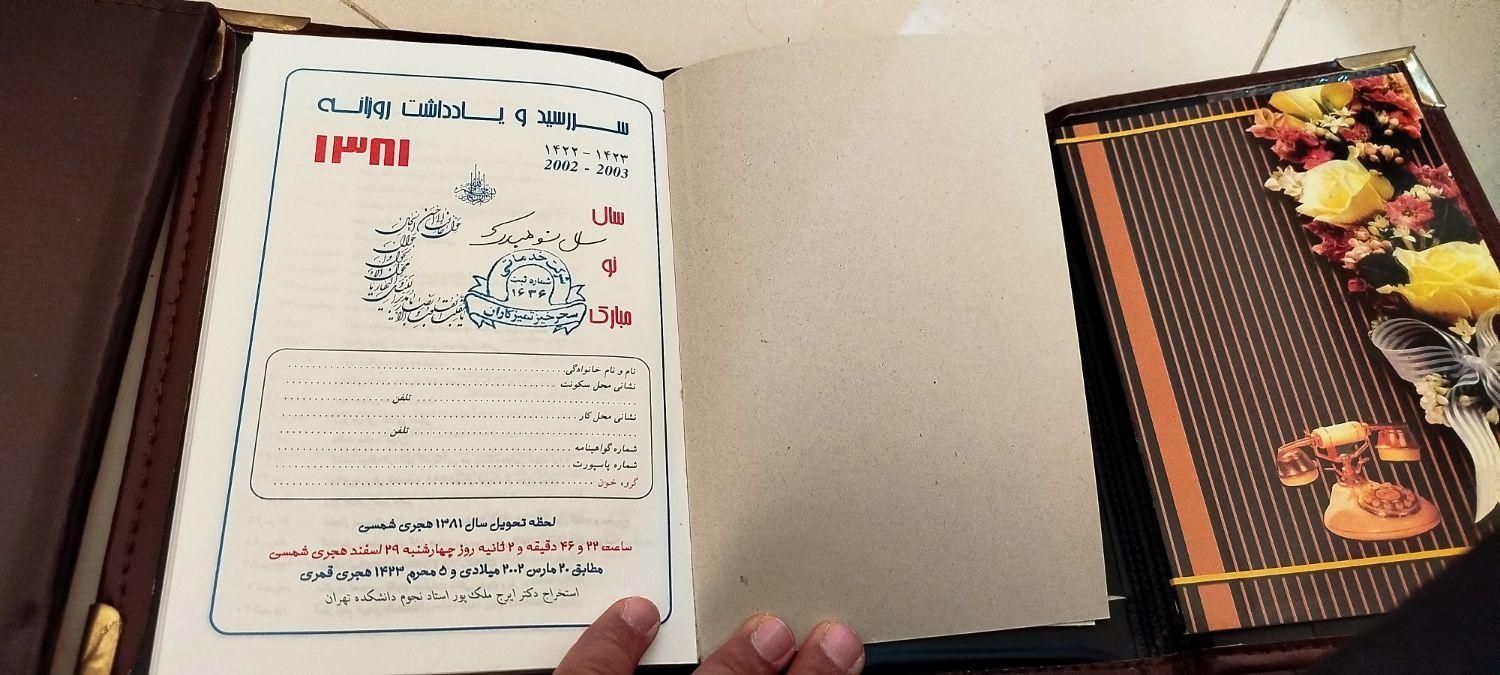 سررسید و یادداشت روزانه
۱۳۸۱
۱۴۲۲ - ۱۴۲۳
2002 - 2003
سال
نو
مبارک
سال نو مبارک
شرکت خدماتی
شماره ثبت
۱۶۳۶
سحرخیز تمیزکاران
نام و نام خانوادگی
نشانی محل سکونت
تلفن
نشانی محل کار
تلفن
شماره گواهینامه
شماره پاسپورت
گروه خون
لحظه تحویل سال ۱۳۸۱ هجری شمسی
ساعت ۲۲ و ۴۶ دقیقه و ۲ ثانیه روز چهارشنبه ۲۹ اسفند هجری شمسی
مطابق ۲۰ مارس ۲۰۰۲ میلادی و ۵ محرم ۱۴۲۳ هجری قمری
استخراج دکتر ایرج ملک‌پور استاد نجوم دانشکده تهران